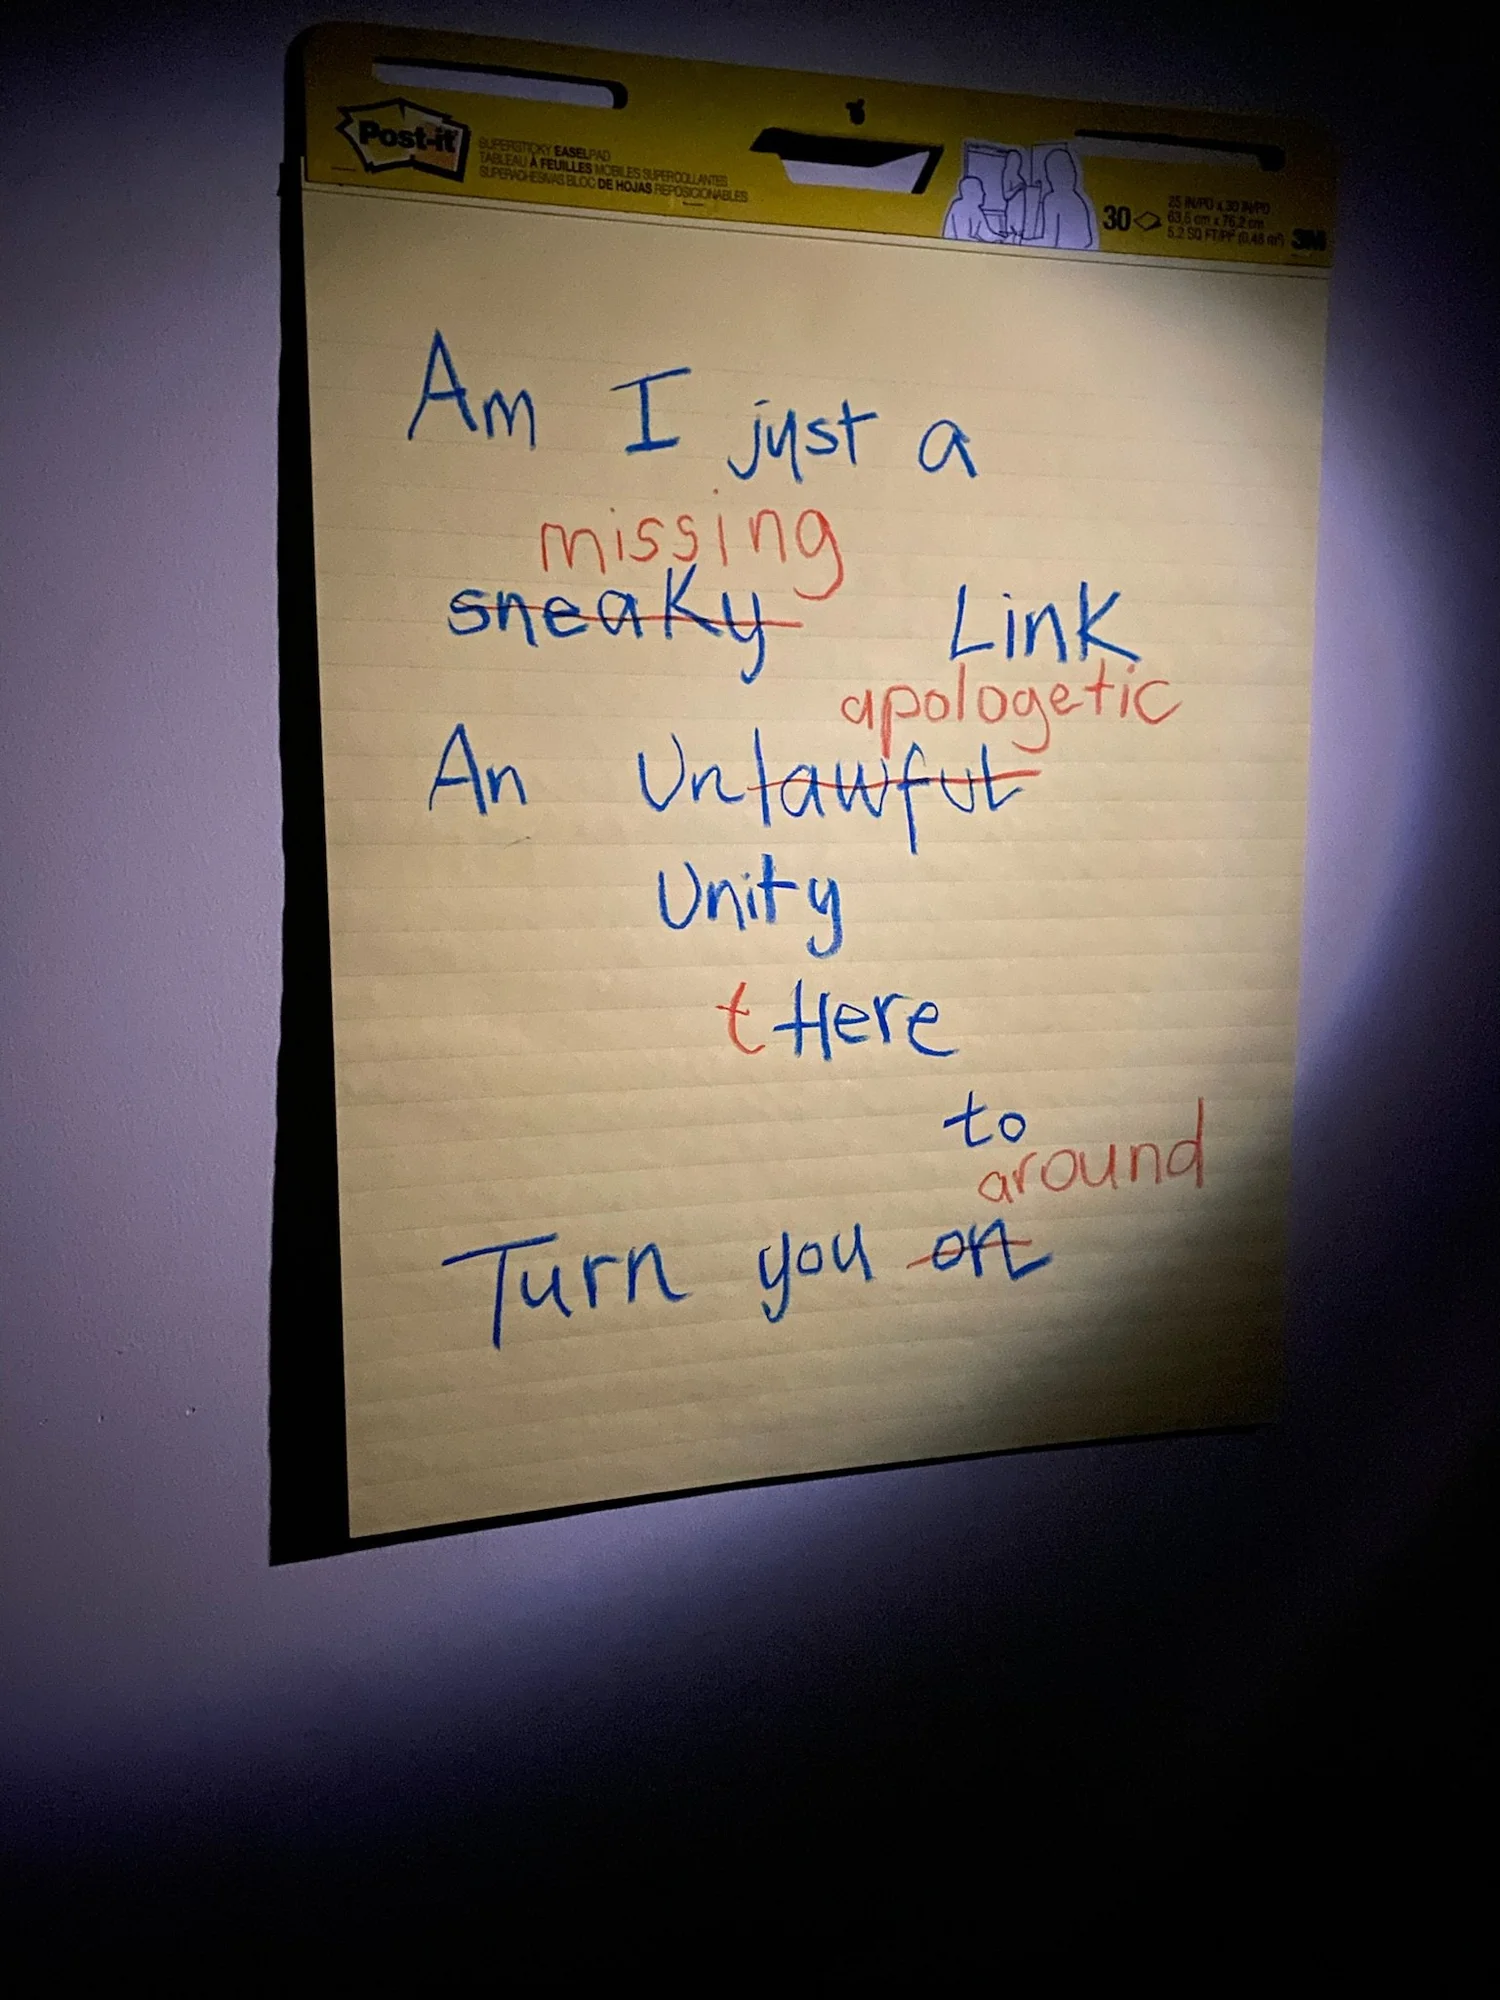 Post-it
SUPERSTICKY EASELPAD
TABLEAU À FEUILLES MOBILES SUPERCOLLANTES
SUPERADHESIVAS BLOC DE HOJAS REPOSICIONABLES
30
25 IN/PO x 30 IN/PO
63,5 cm x 76,2 cm
5.2 SQ FT/PI² (0,48 m²)
3M
Am I just a
missing
sneaky Link
apologetic
An Unlawful
Unity
tHere
to
around
Turn you on